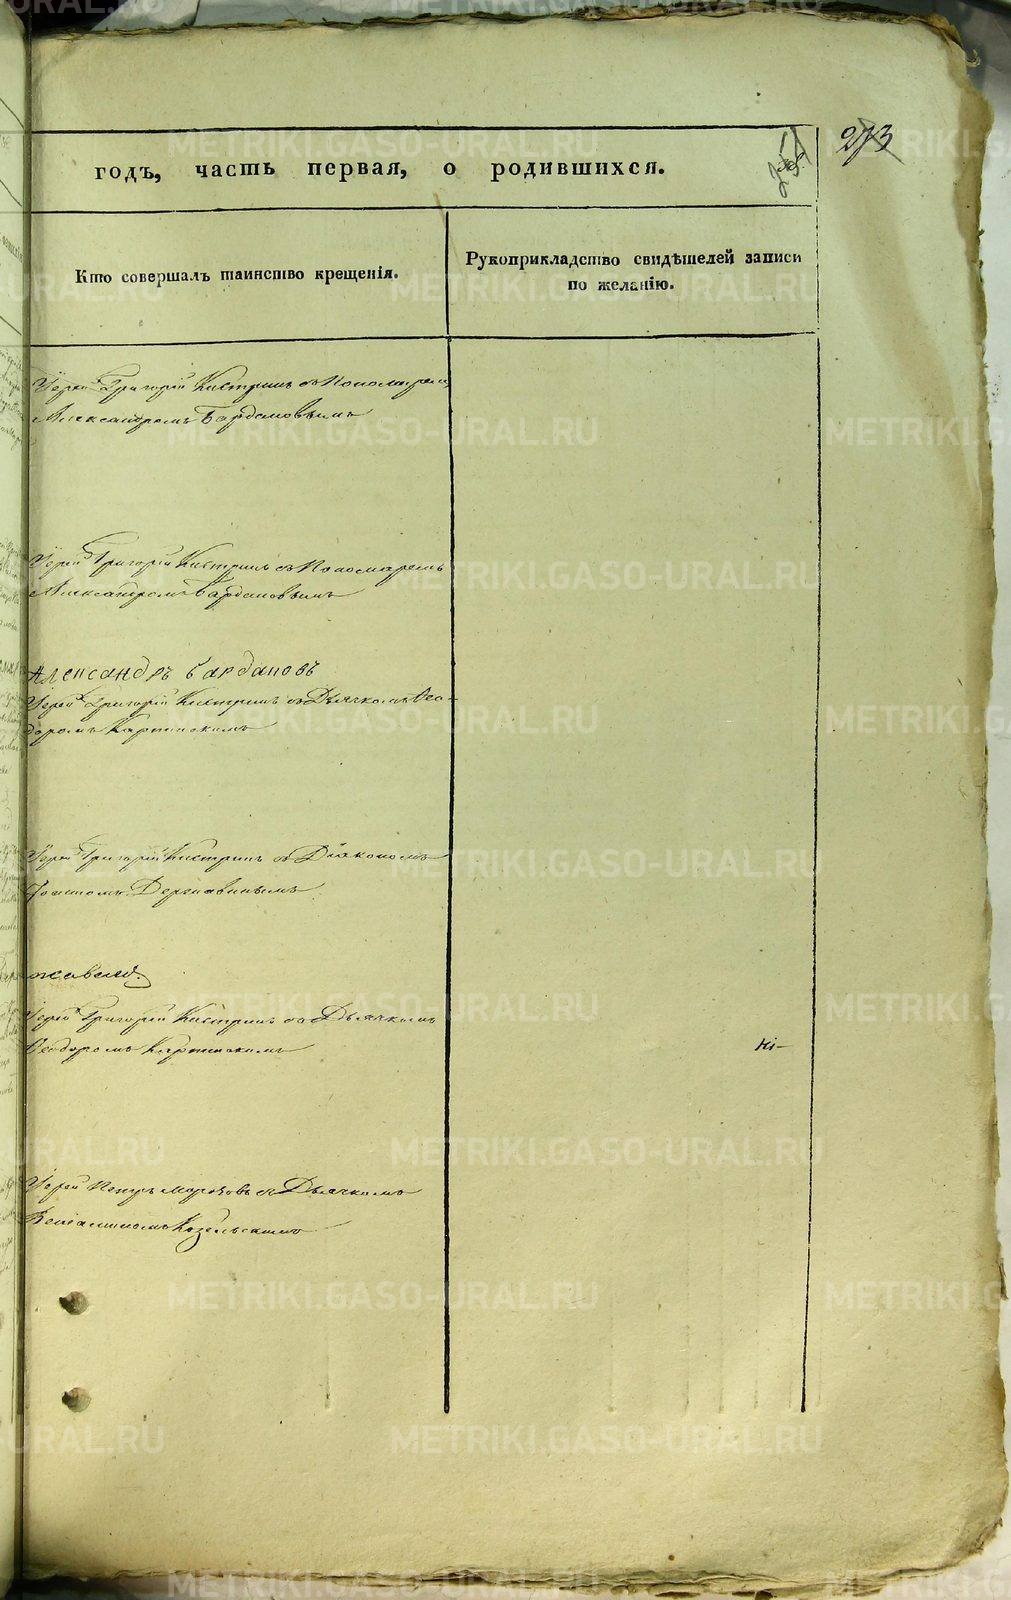 273
годъ, часть первая, о родившихся.
Кто совершалъ таинство крещенія.
Рукоприкладство свидѣтелей записи
по желанію.
Іерей Григорій Кистринъ съ Пономаремъ
Александромъ Бардановымъ
Іерей Григорій Кистринъ съ Пономаремъ
Александромъ Бардановымъ
Александръ Бардановъ
Іерей Григорій Кистринъ съ Дьячкомъ Ѳео-
доромъ Карпинскимъ
Іерей Григорій Кистринъ съ Діакономъ
Державинымъ
Іерей Григорій Кистринъ съ Дьячкомъ
Ѳеодоромъ Карпинскимъ
кі-
Іерей Петръ Морозовъ съ Дьячкомъ
Веніаминомъ Козельскимъ
METRIKI.GASO-URAL.RU